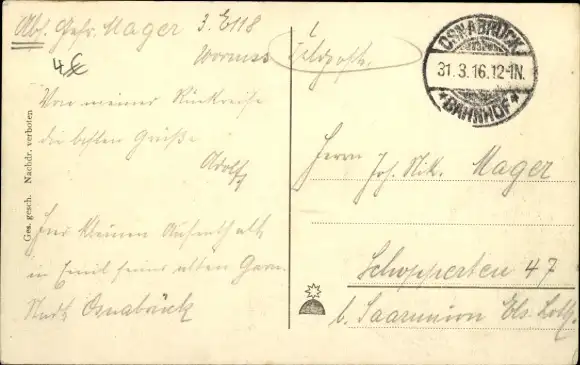 Abs. Gefr. Mager 3. E 118
Worms
Feldpostk.
OSNABRÜCK
31.3.16.12-1N.
* BAHNHOF *
Von meiner Rückreise
die besten Grüße
Adolf
Kurzen Aufenthalt
in Emil seine alten Garn.
Stadt Osnabrück
Herrn
Joh. Nik. Mager
Schopperten 47
b. Saarunion Els. Loth.
Ges. gesch. Nachdr. verboten